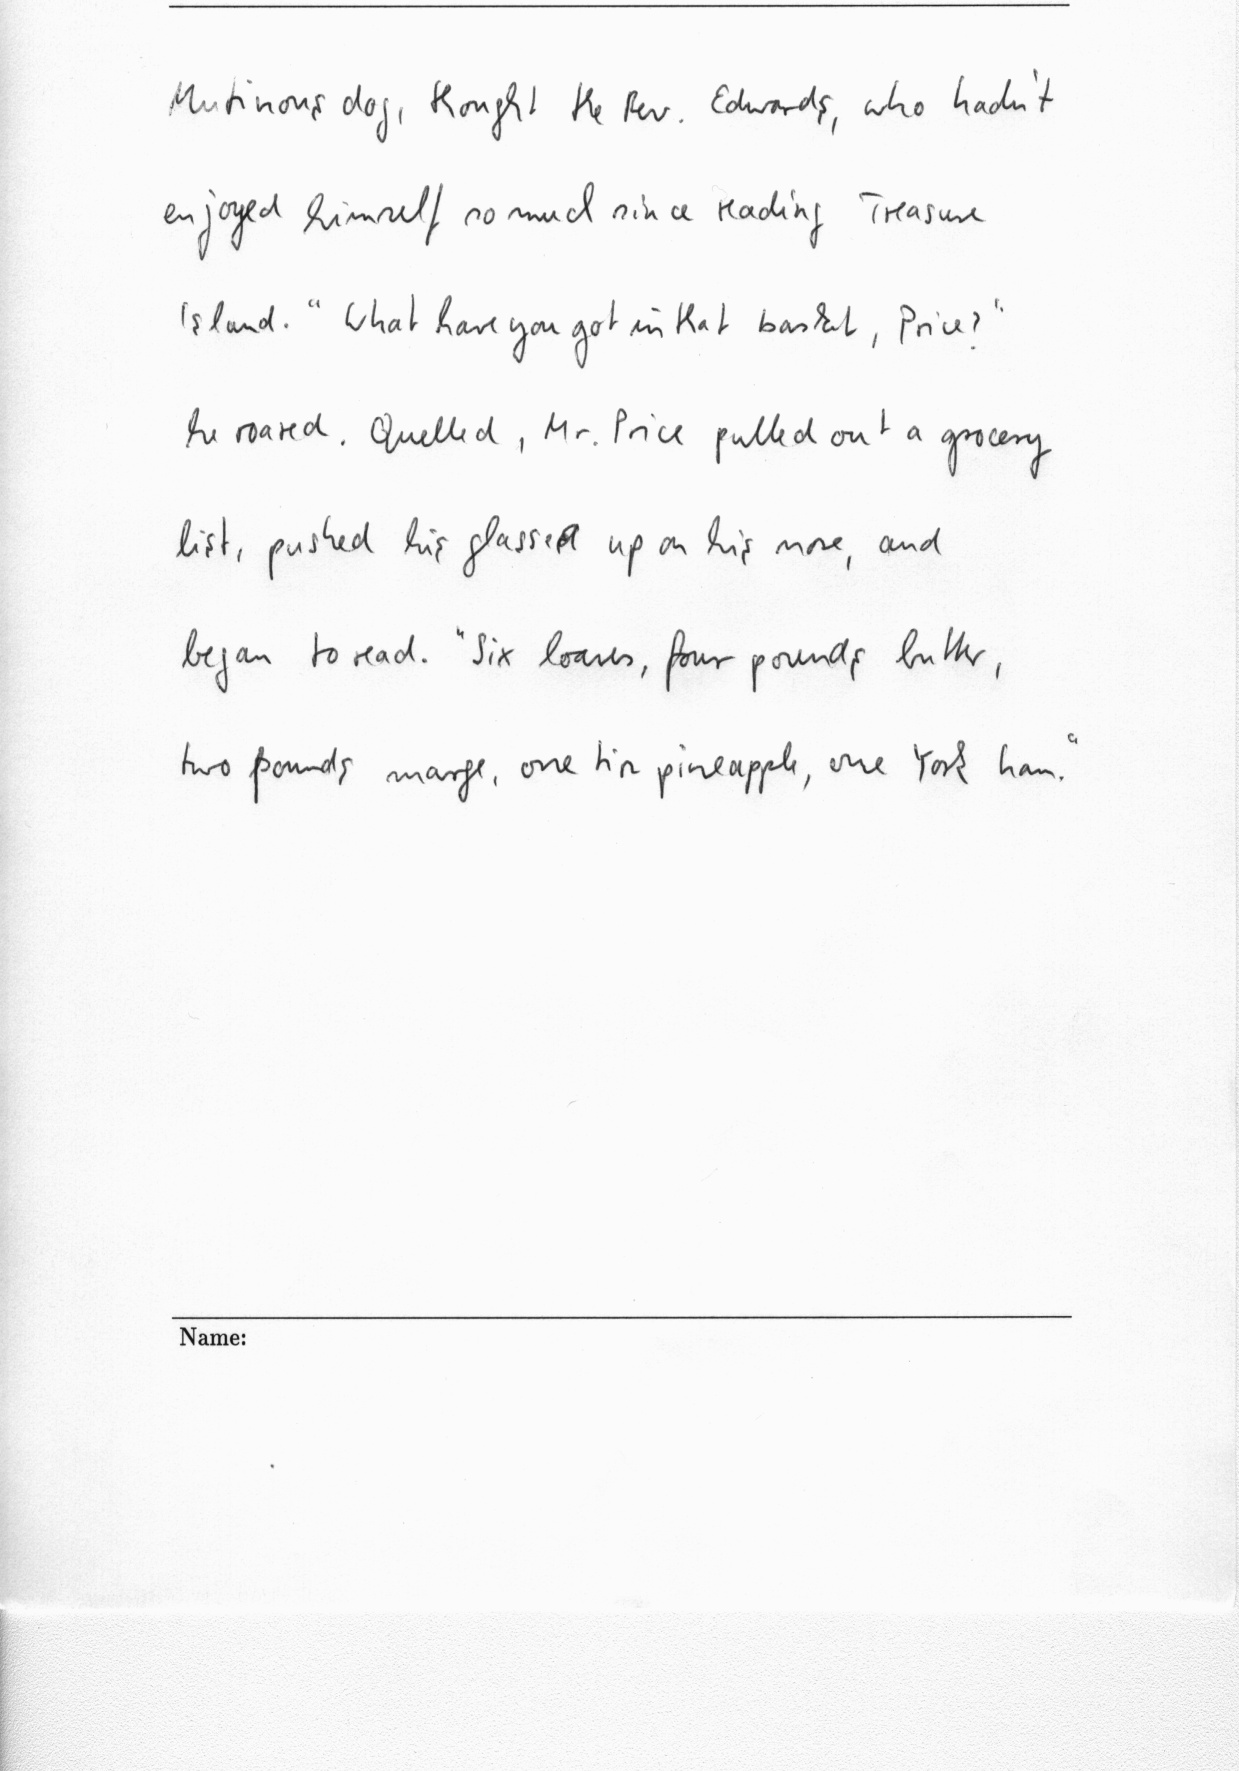 Mutinous dog, thought the Rev. Edwards, who hadn't
enjoyed himself so much since reading Treasure
Island. "What have you got in that basket, Price?"
he roared. Quelled, Mr. Price pulled out a grocery
list, pushed his glasses up on his nose, and
began to read. "Six loaves, four pounds butter,
two pounds marge, one tin pineapple, one York ham."
Name: